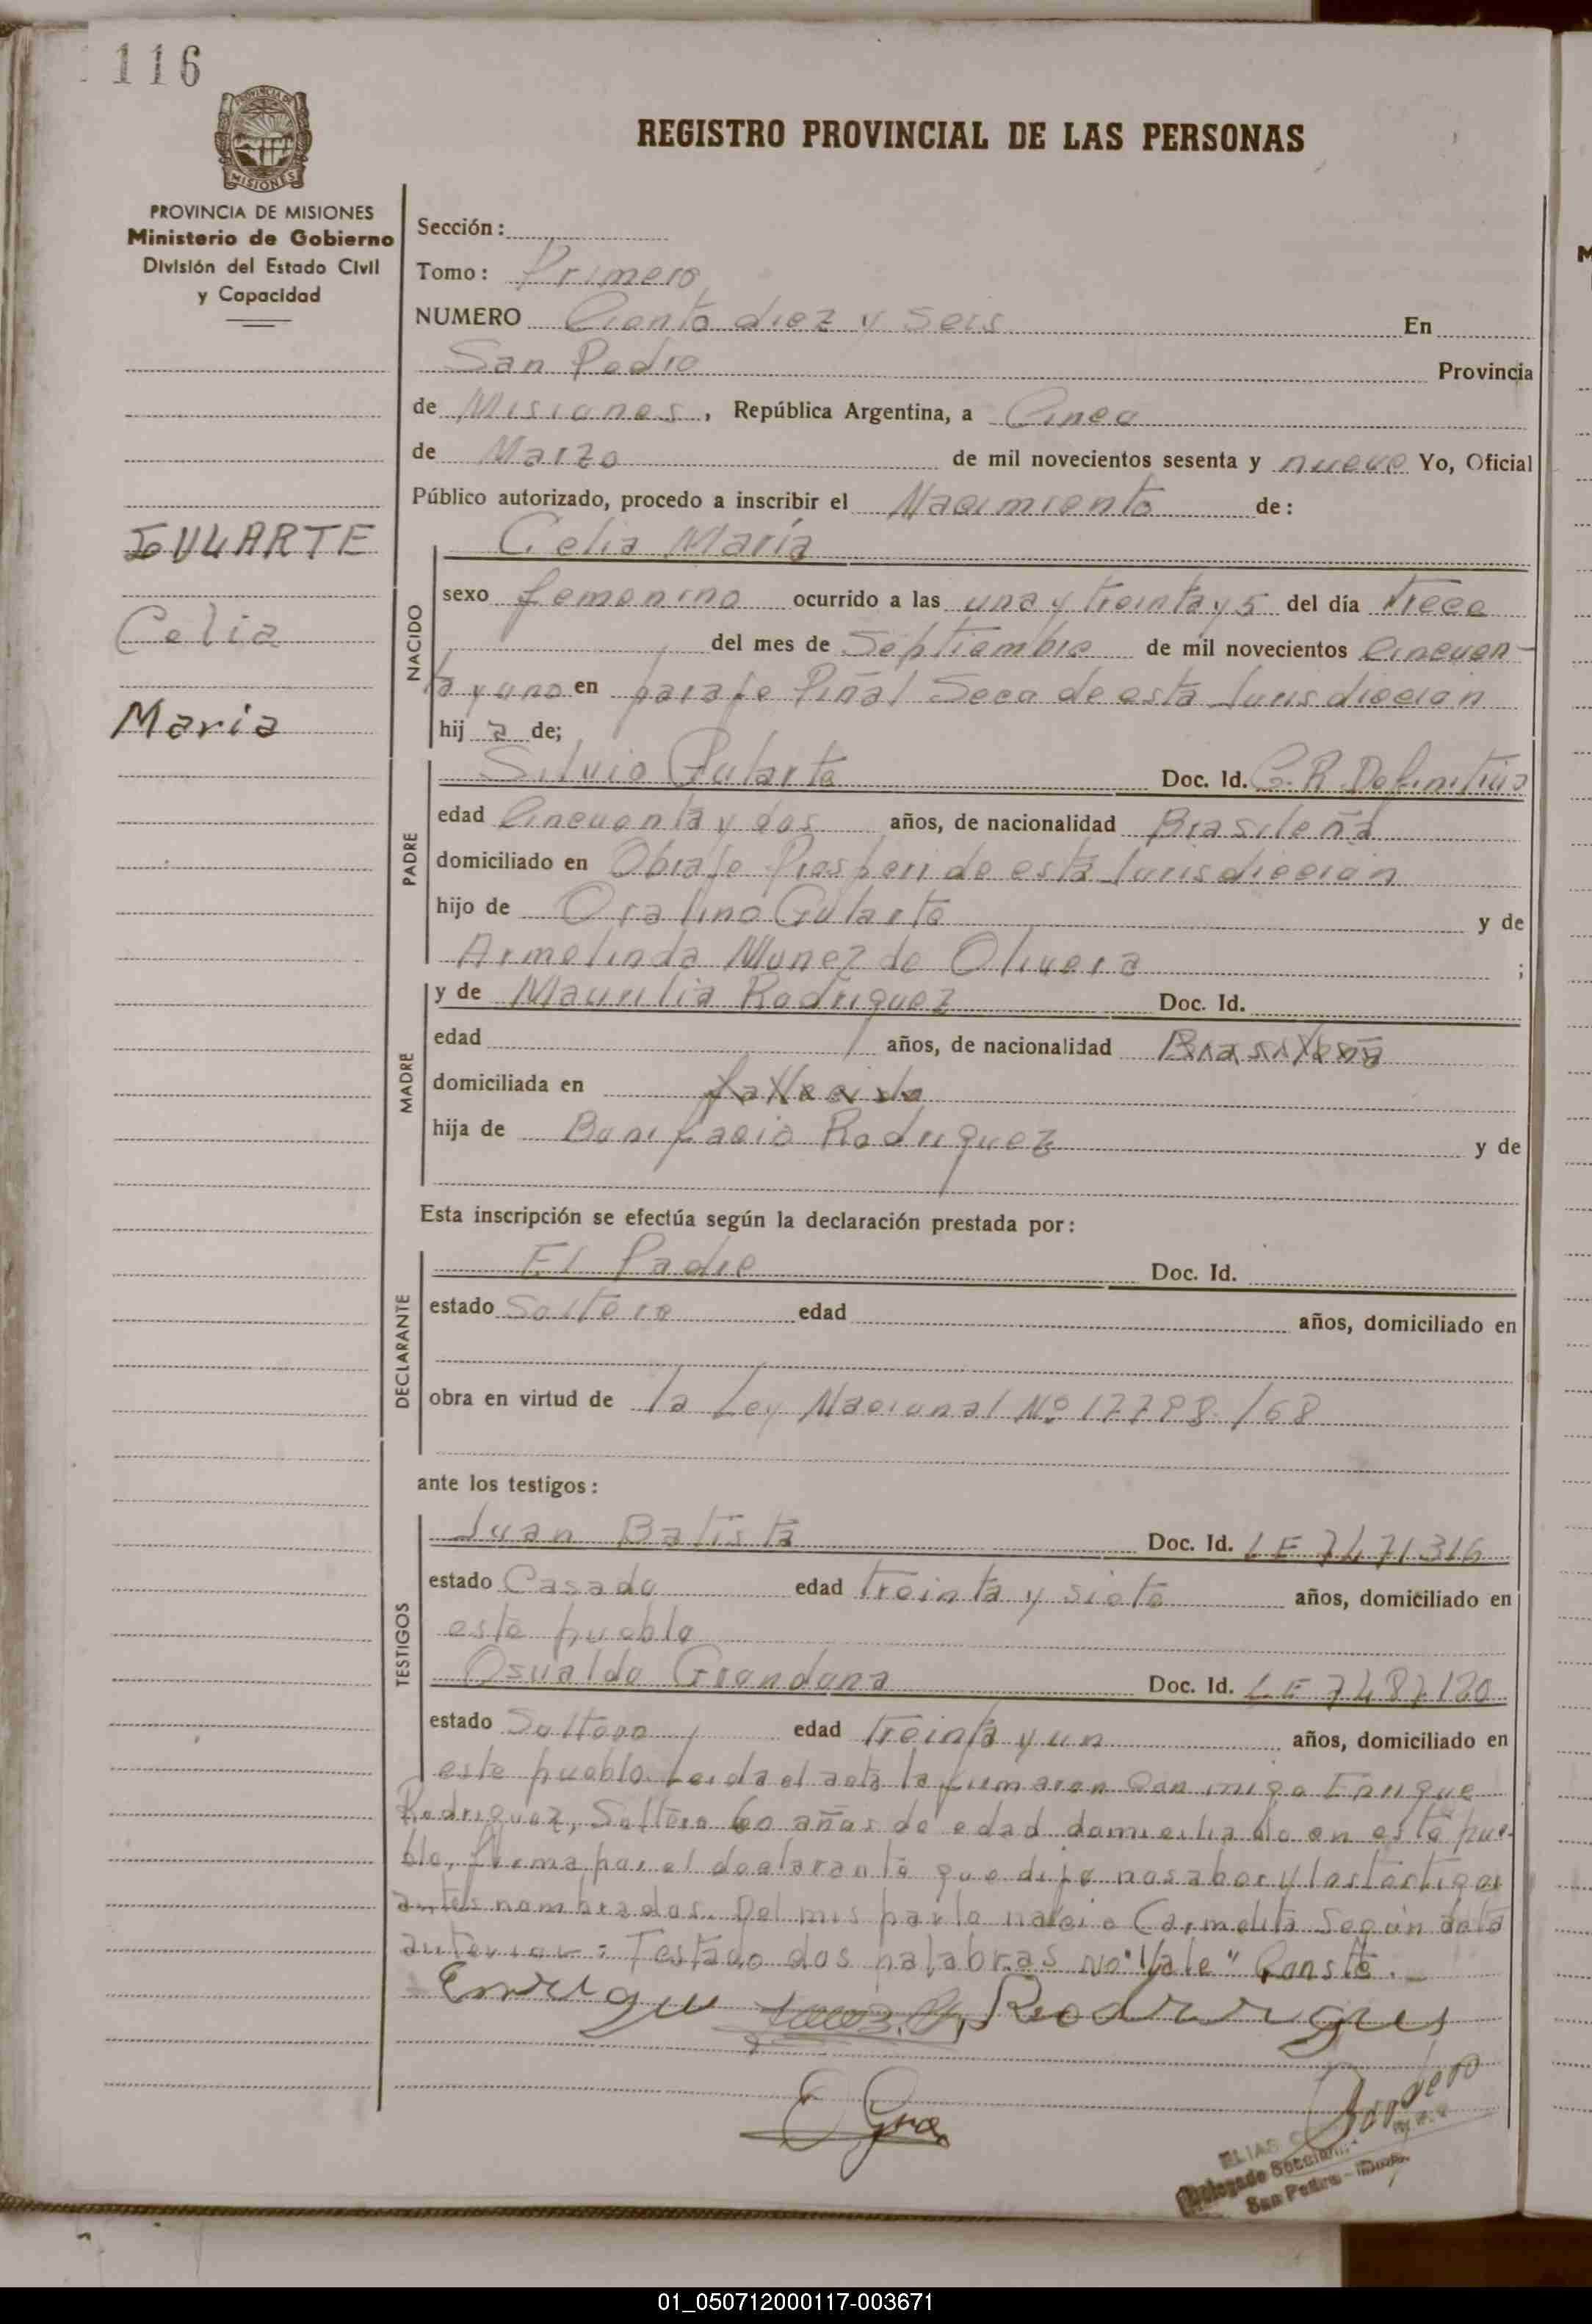 116
PROVINCIA DE MISIONES
Ministerio de Gobierno
División del Estado Civil
y Capacidad
GULARTE
Celia
Maria
REGISTRO PROVINCIAL DE LAS PERSONAS
Sección:
Tomo: Primero
NUMERO Ciento diez y seis En
San Pedro Provincia
de Misiones, República Argentina, a Cinco
de Marzo de mil novecientos sesenta y nueve Yo, Oficial
Público autorizado, procedo a inscribir el Nacimiento de:
NACIDO
Celia María
sexo femenino ocurrido a las una y treinta y 5 del día trece
del mes de Septiembre de mil novecientos Cincuen-
ta y uno en paraje Piñal Seco de esta Jurisdicción
hij a de;
PADRE
Silvio Gularte Doc. Id. C.R. Definitiva
edad Cincuenta y dos años, de nacionalidad Brasileña
domiciliado en Obraje Prosperi de esta Jurisdicción
hijo de Oralino Gularte y de
Armelinda Munez de Olivera ;
MADRE
y de Maurilia Rodriguez Doc. Id.
edad años, de nacionalidad Brasileña
domiciliada en fallecida
hija de Bonifacio Rodriguez y de
Esta inscripción se efectúa según la declaración prestada por:
DECLARANTE
El Padre Doc. Id.
estado Soltero edad años, domiciliado en
obra en virtud de la Ley Nacional Nº 17798/68
ante los testigos:
TESTIGOS
Juan Batista Doc. Id. LE 7471316
estado Casado edad treinta y siete años, domiciliado en
este pueblo
Osvaldo Grondona Doc. Id. LE 7487120
estado Soltero edad treinta y un años, domiciliado en
este pueblo. Leida el acta la firmaron con migo Enrique
Rodriguez, Soltero 60 años de edad domiciliado en este pue-
blo, firma por el declarante que dijo no saber y los testigos
antes nombrados. Del mis parto nació Carmelita Según acta
anterior: Testado dos palabras No "Vale" Conste.
Enrique Rodrigues
ELIAS
Delegado Seccional
San Pedro - Mnes.
01_050712000117-003671